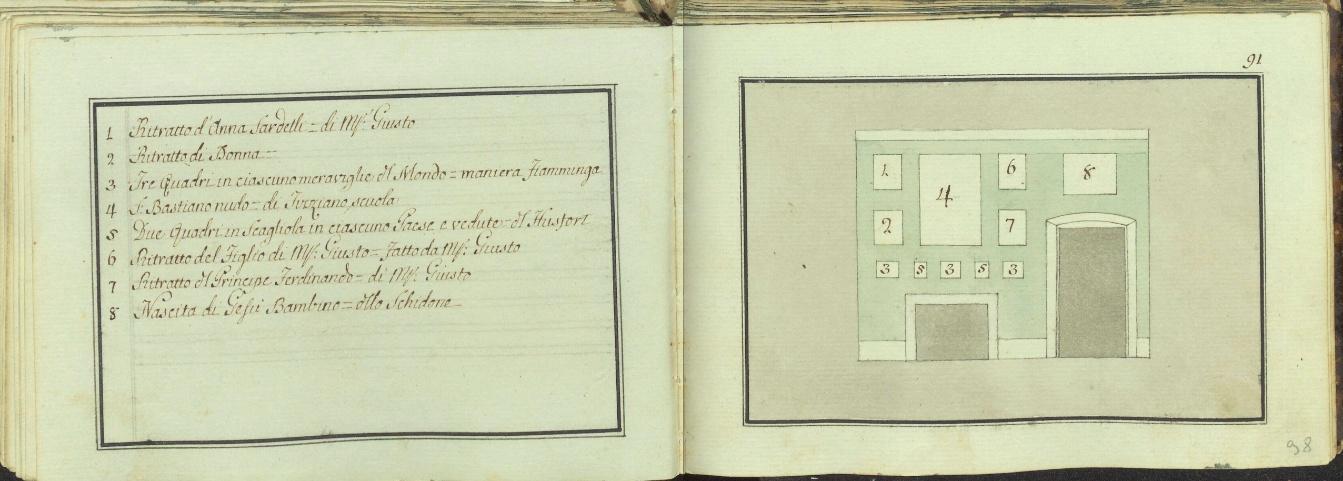 1 Ritratto d'Anna Sardelli = di Mſ: Giusto
2 Ritratto di Donna =
3 Tre Quadri in ciascuno meraviglie dl Mondo = maniera fiamminga
4 S. Bastiano nudo = di Tizziano, scuola
5 Due Quadri in Scagliola in ciascuno Paese e vedute = dl Husfort
6 Ritratto del Figlio di Mſ: Giusto = fatto da Mſ: Giusto
7 Ritratto dl Principe Ferdinando = di Mſ: Giusto
8 Nascita di Gesù Bambino = dllo Schidone
91
1 6 8
4
2 7
3 5 3 5 3
98